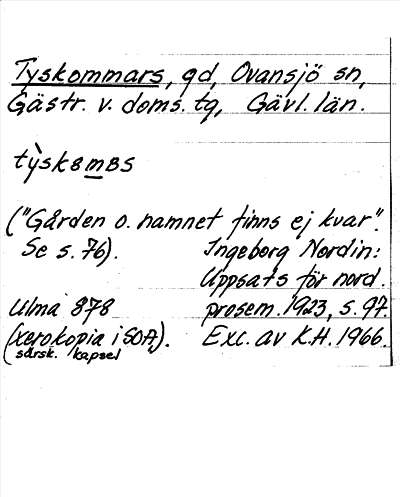 Tyskommars, gd, Ovansjö sn,
Gästr. v. doms. tg, Gävl. län.
tỳskȣmȣs
("Gården o. namnet finns ej kvar".
Se s. 76). Ingeborg Nordin:
Uppsats för nord.
Ulma 878 prosem. 1923, s. 97.
(xerokopia i SOA,). Exc. av K.H. 1966.
särsk. kapsel